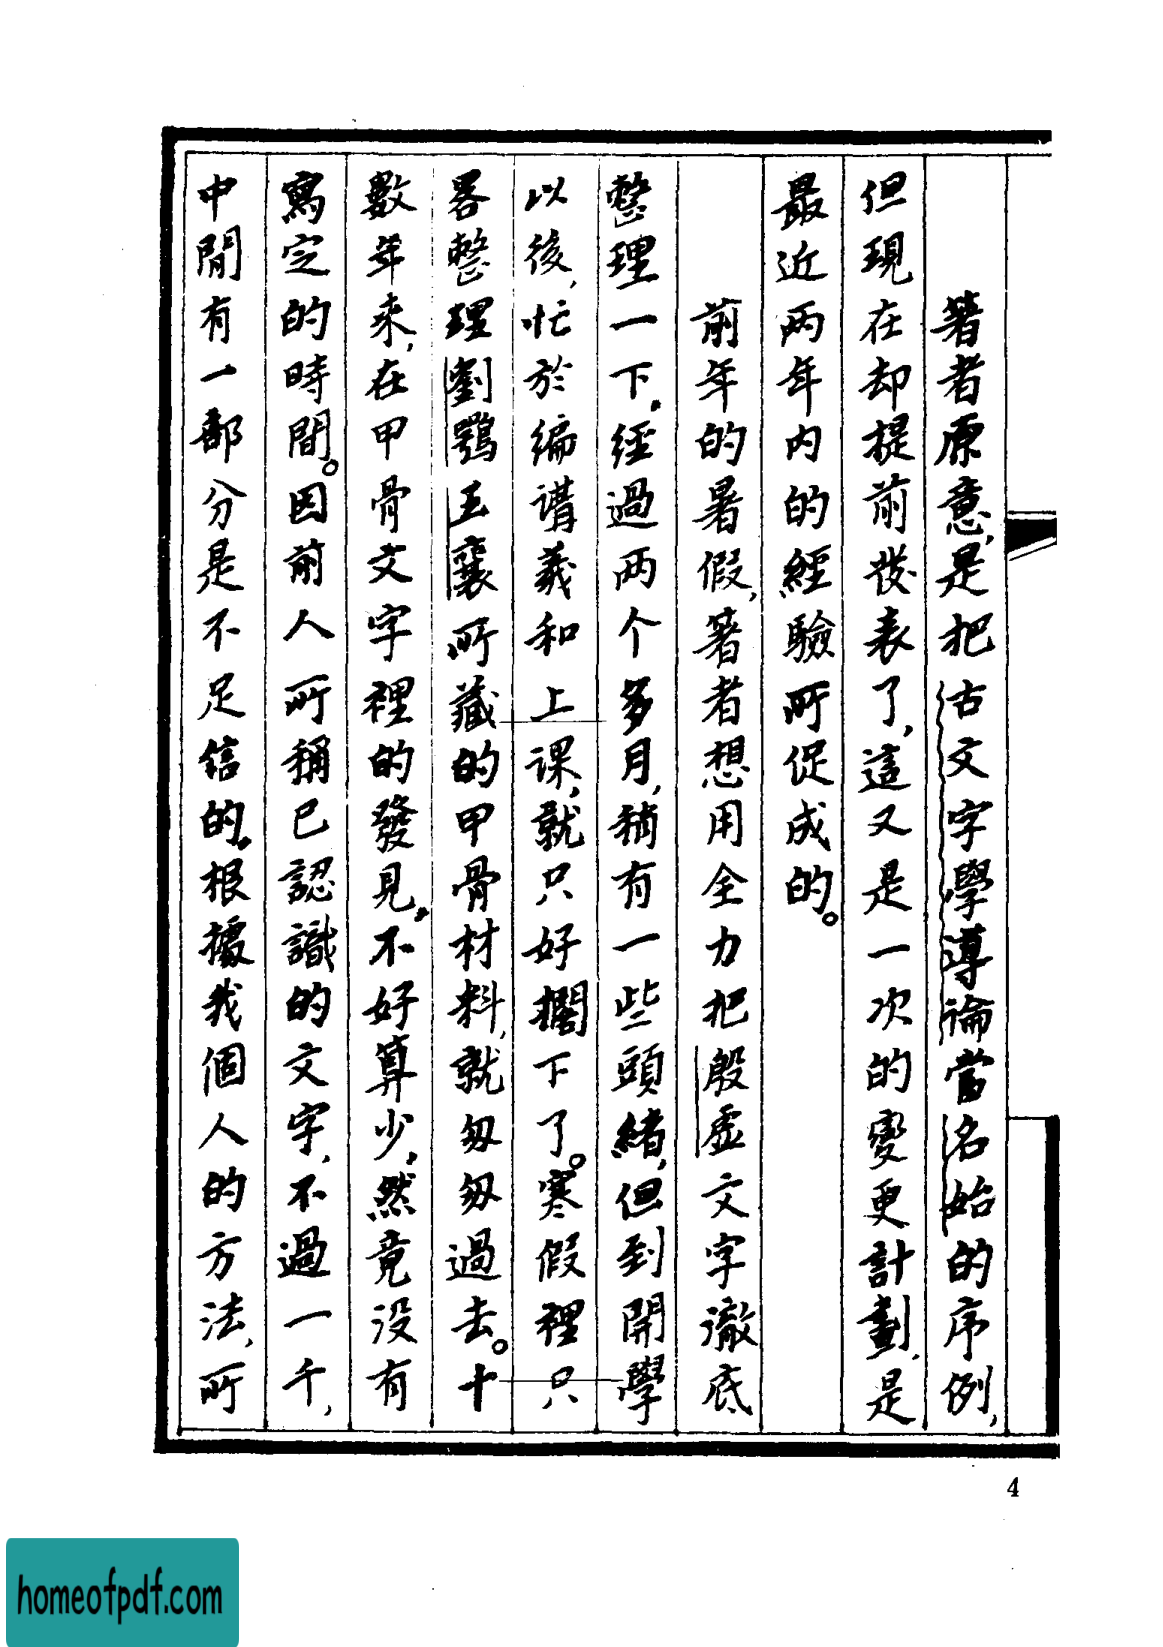 著者原意,是把古文字學導論當名始的序例,
但現在却提前發表了,這又是一次的變更計劃,是
最近两年内的經驗所促成的。
前年的暑假,著者想用全力把殷虛文字徹底
整理一下.經過两个多月,稍有一些頭緒,但到開學
以後,忙於編講義和上課,就只好擱下了。寒假裡只
畧整理劉鶚王襄所藏的甲骨材料,就匆匆過去。十
數年來,在甲骨文字裡的發見,不好算少,然竟没有
寫定的時間。因前人所稱已認識的文字,不過一千,
中間有一部分是不足信的,根據我個人的方法,所
4
homeofpdf.com